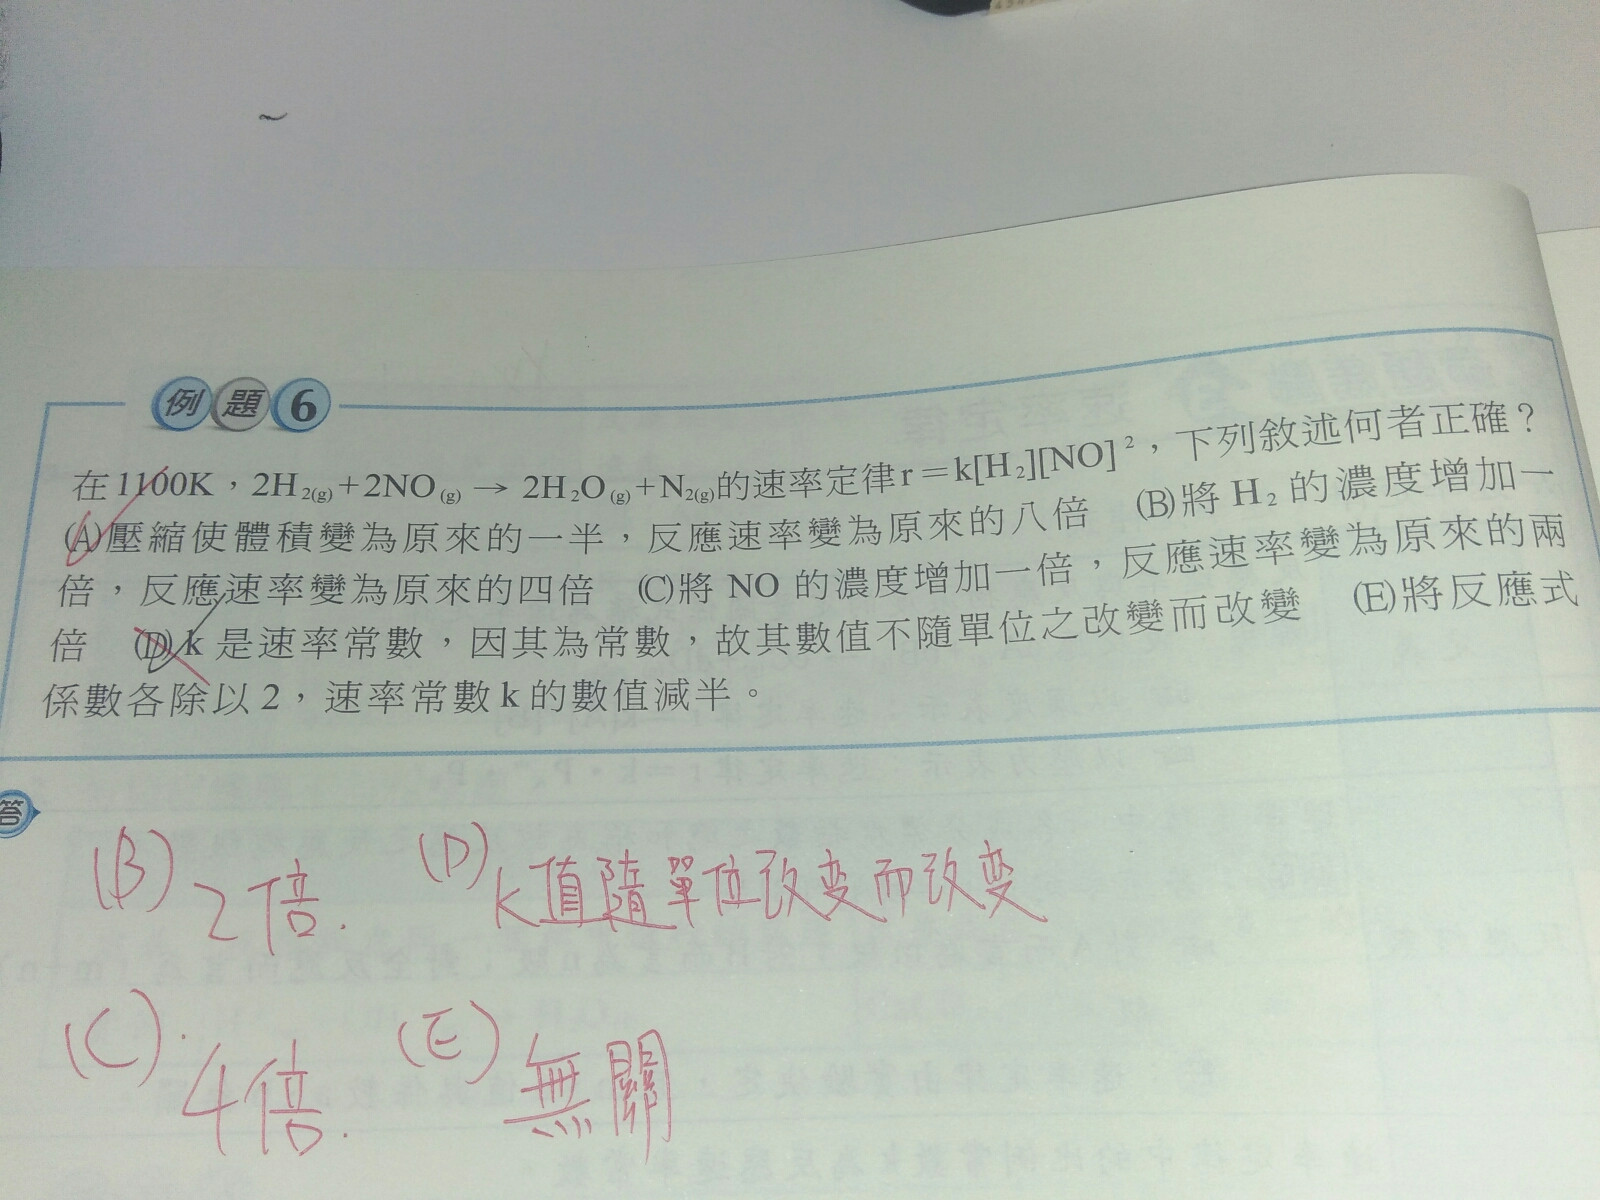 例題6
在1100K，2H₂(g)+2NO(g) → 2H₂O(g)+N₂(g)的速率定律r＝k[H₂][NO]²，下列敘述何者正確？
(A)壓縮使體積變為原來的一半，反應速率變為原來的八倍　(B)將 H₂ 的濃度增加一
倍，反應速率變為原來的四倍　(C)將 NO 的濃度增加一倍，反應速率變為原來的兩
倍　(D)k 是速率常數，因其為常數，故其數值不隨單位之改變而改變　(E)將反應式
係數各除以2，速率常數k的數值減半。
答
(B) 2倍.　(D) k值隨單位改变而改变
(C) 4倍.　(E) 無關